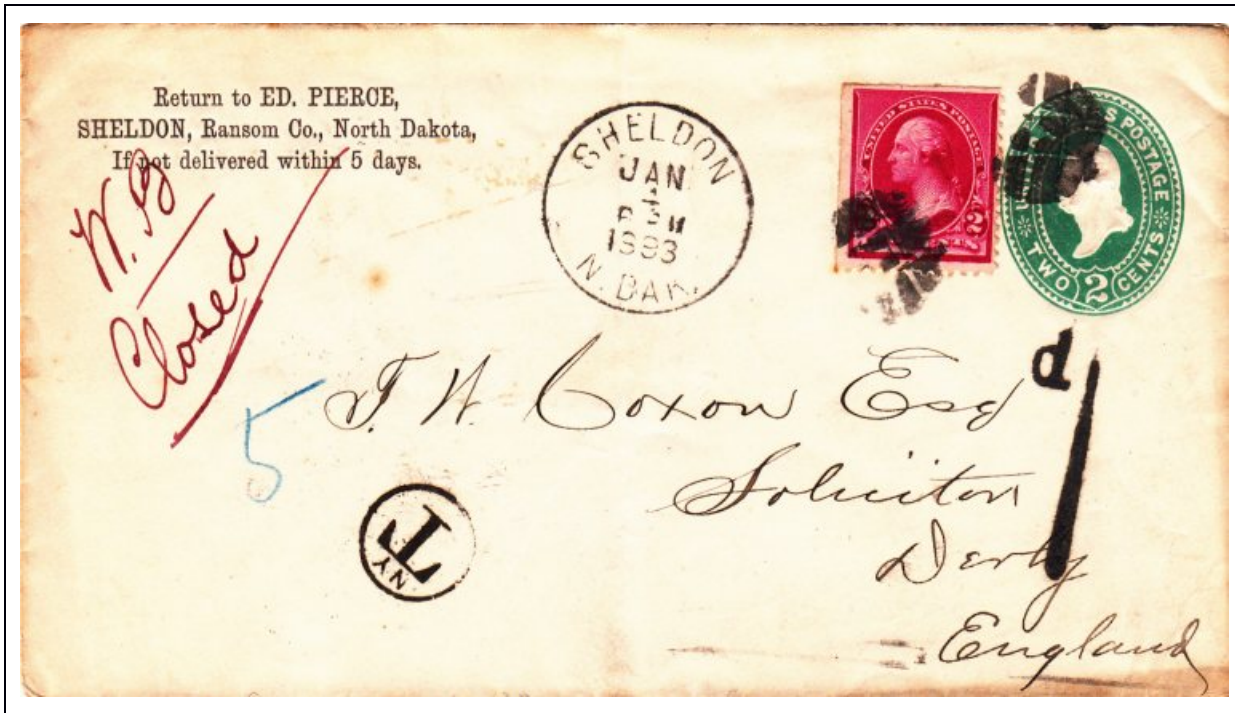 Return to ED. PIERCE,
SHELDON, Ransom Co., North Dakota,
If not delivered within 5 days.
SHELDON
JAN
P M
1893
N. DAK.
UNITED STATES POSTAGE
2
S POSTAGE
TWO 2 CENTS
Closed
5
d
1
T. W. Coxon Esq
Solicitor
Derby
England
T
NY